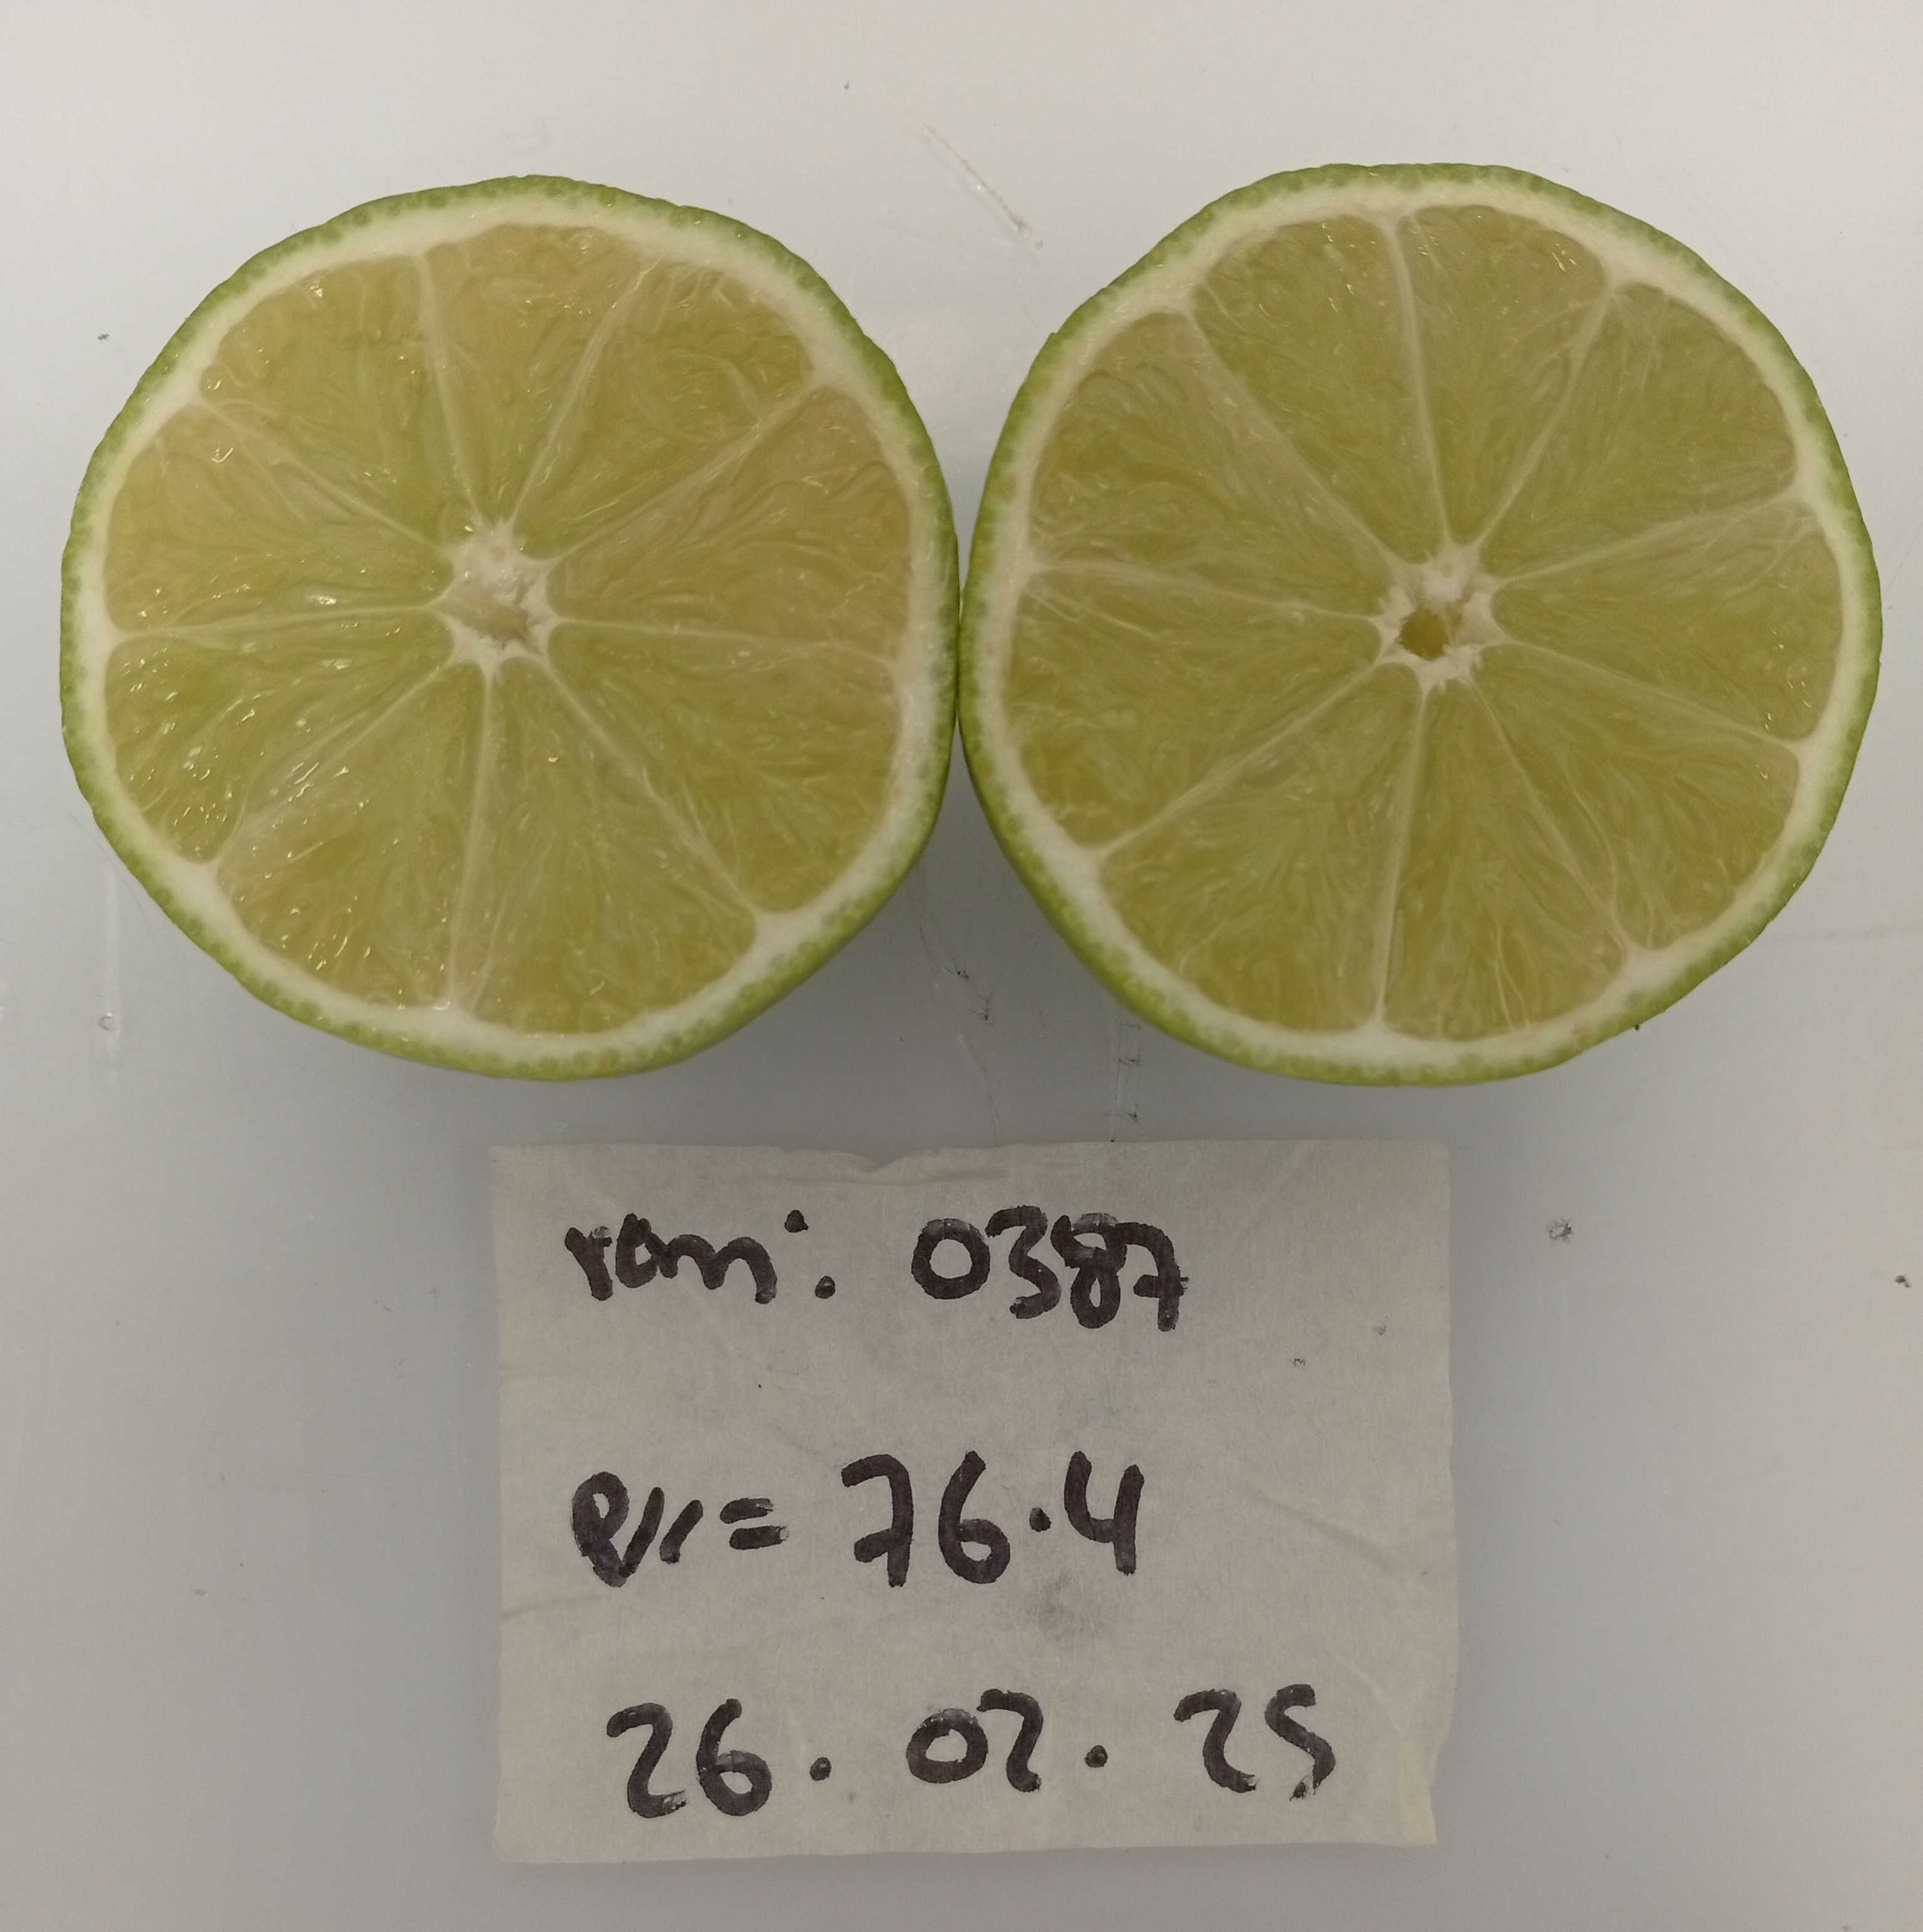 ram: 0387
76.4
26.02.25